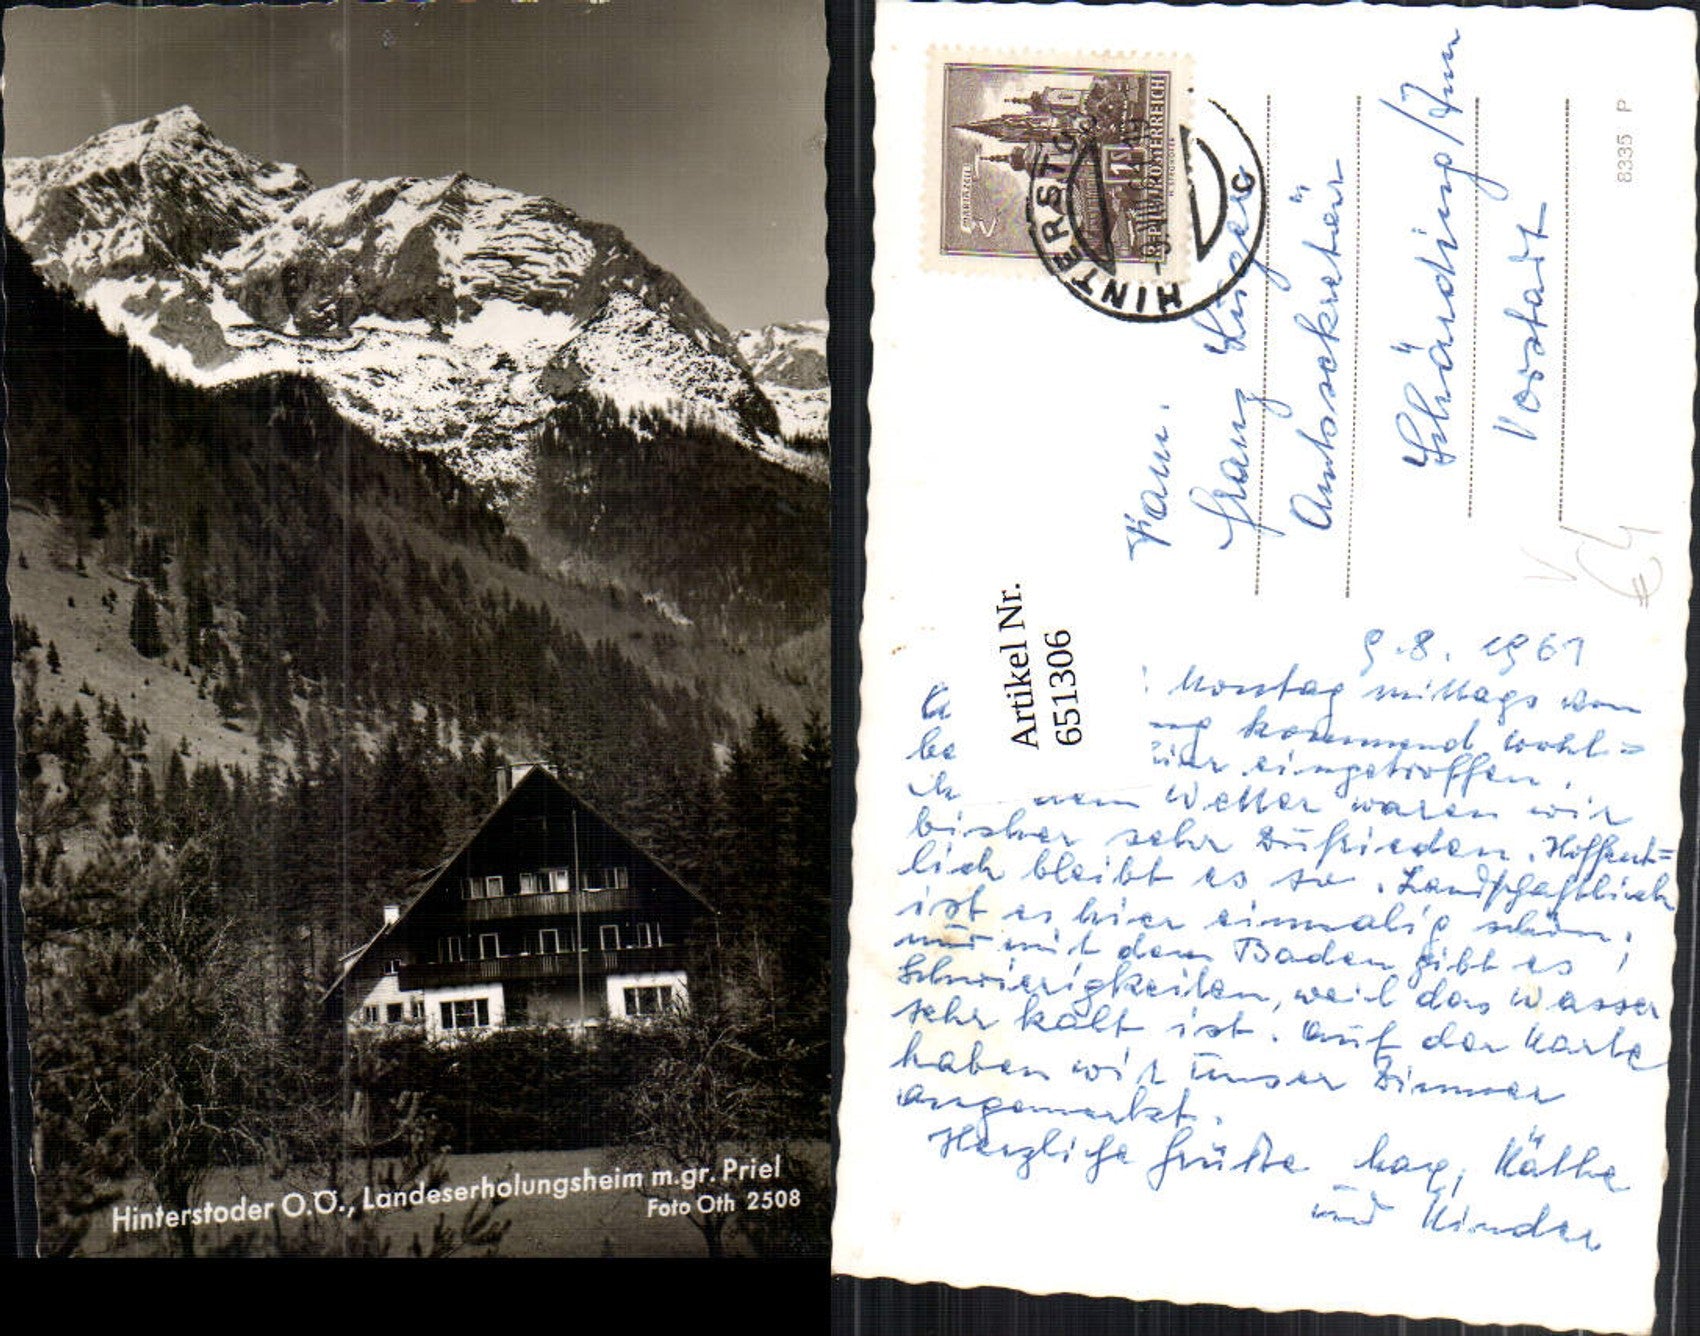 Hinterstoder O.Ö., Landeserholungsheim m.gr. Priel
Foto Oth 2508
MARIAZELL
REPUBLIK ÖSTERREICH
HINTERSTODER
8335 P
Fam.
Franz
Amtssekretär
Schärding/Inn
Vorstadt
V
€ 4
Artikel Nr.
651306
9.8.1961
Montag mittags von
be kommend wohl=
eingetroffen.
dem Wetter waren wir
bisher sehr zufrieden. Hoffent=
lich bleibt es so. Landschaftlich
ist es hier einmalig schön,
nur mit dem Baden gibt es
Schwierigkeiten, weil das Wasser
sehr kalt ist. Auf der Karte
haben wir unser Zimmer
angemerkt.
Herzliche Grüße Käthe
und Kinder